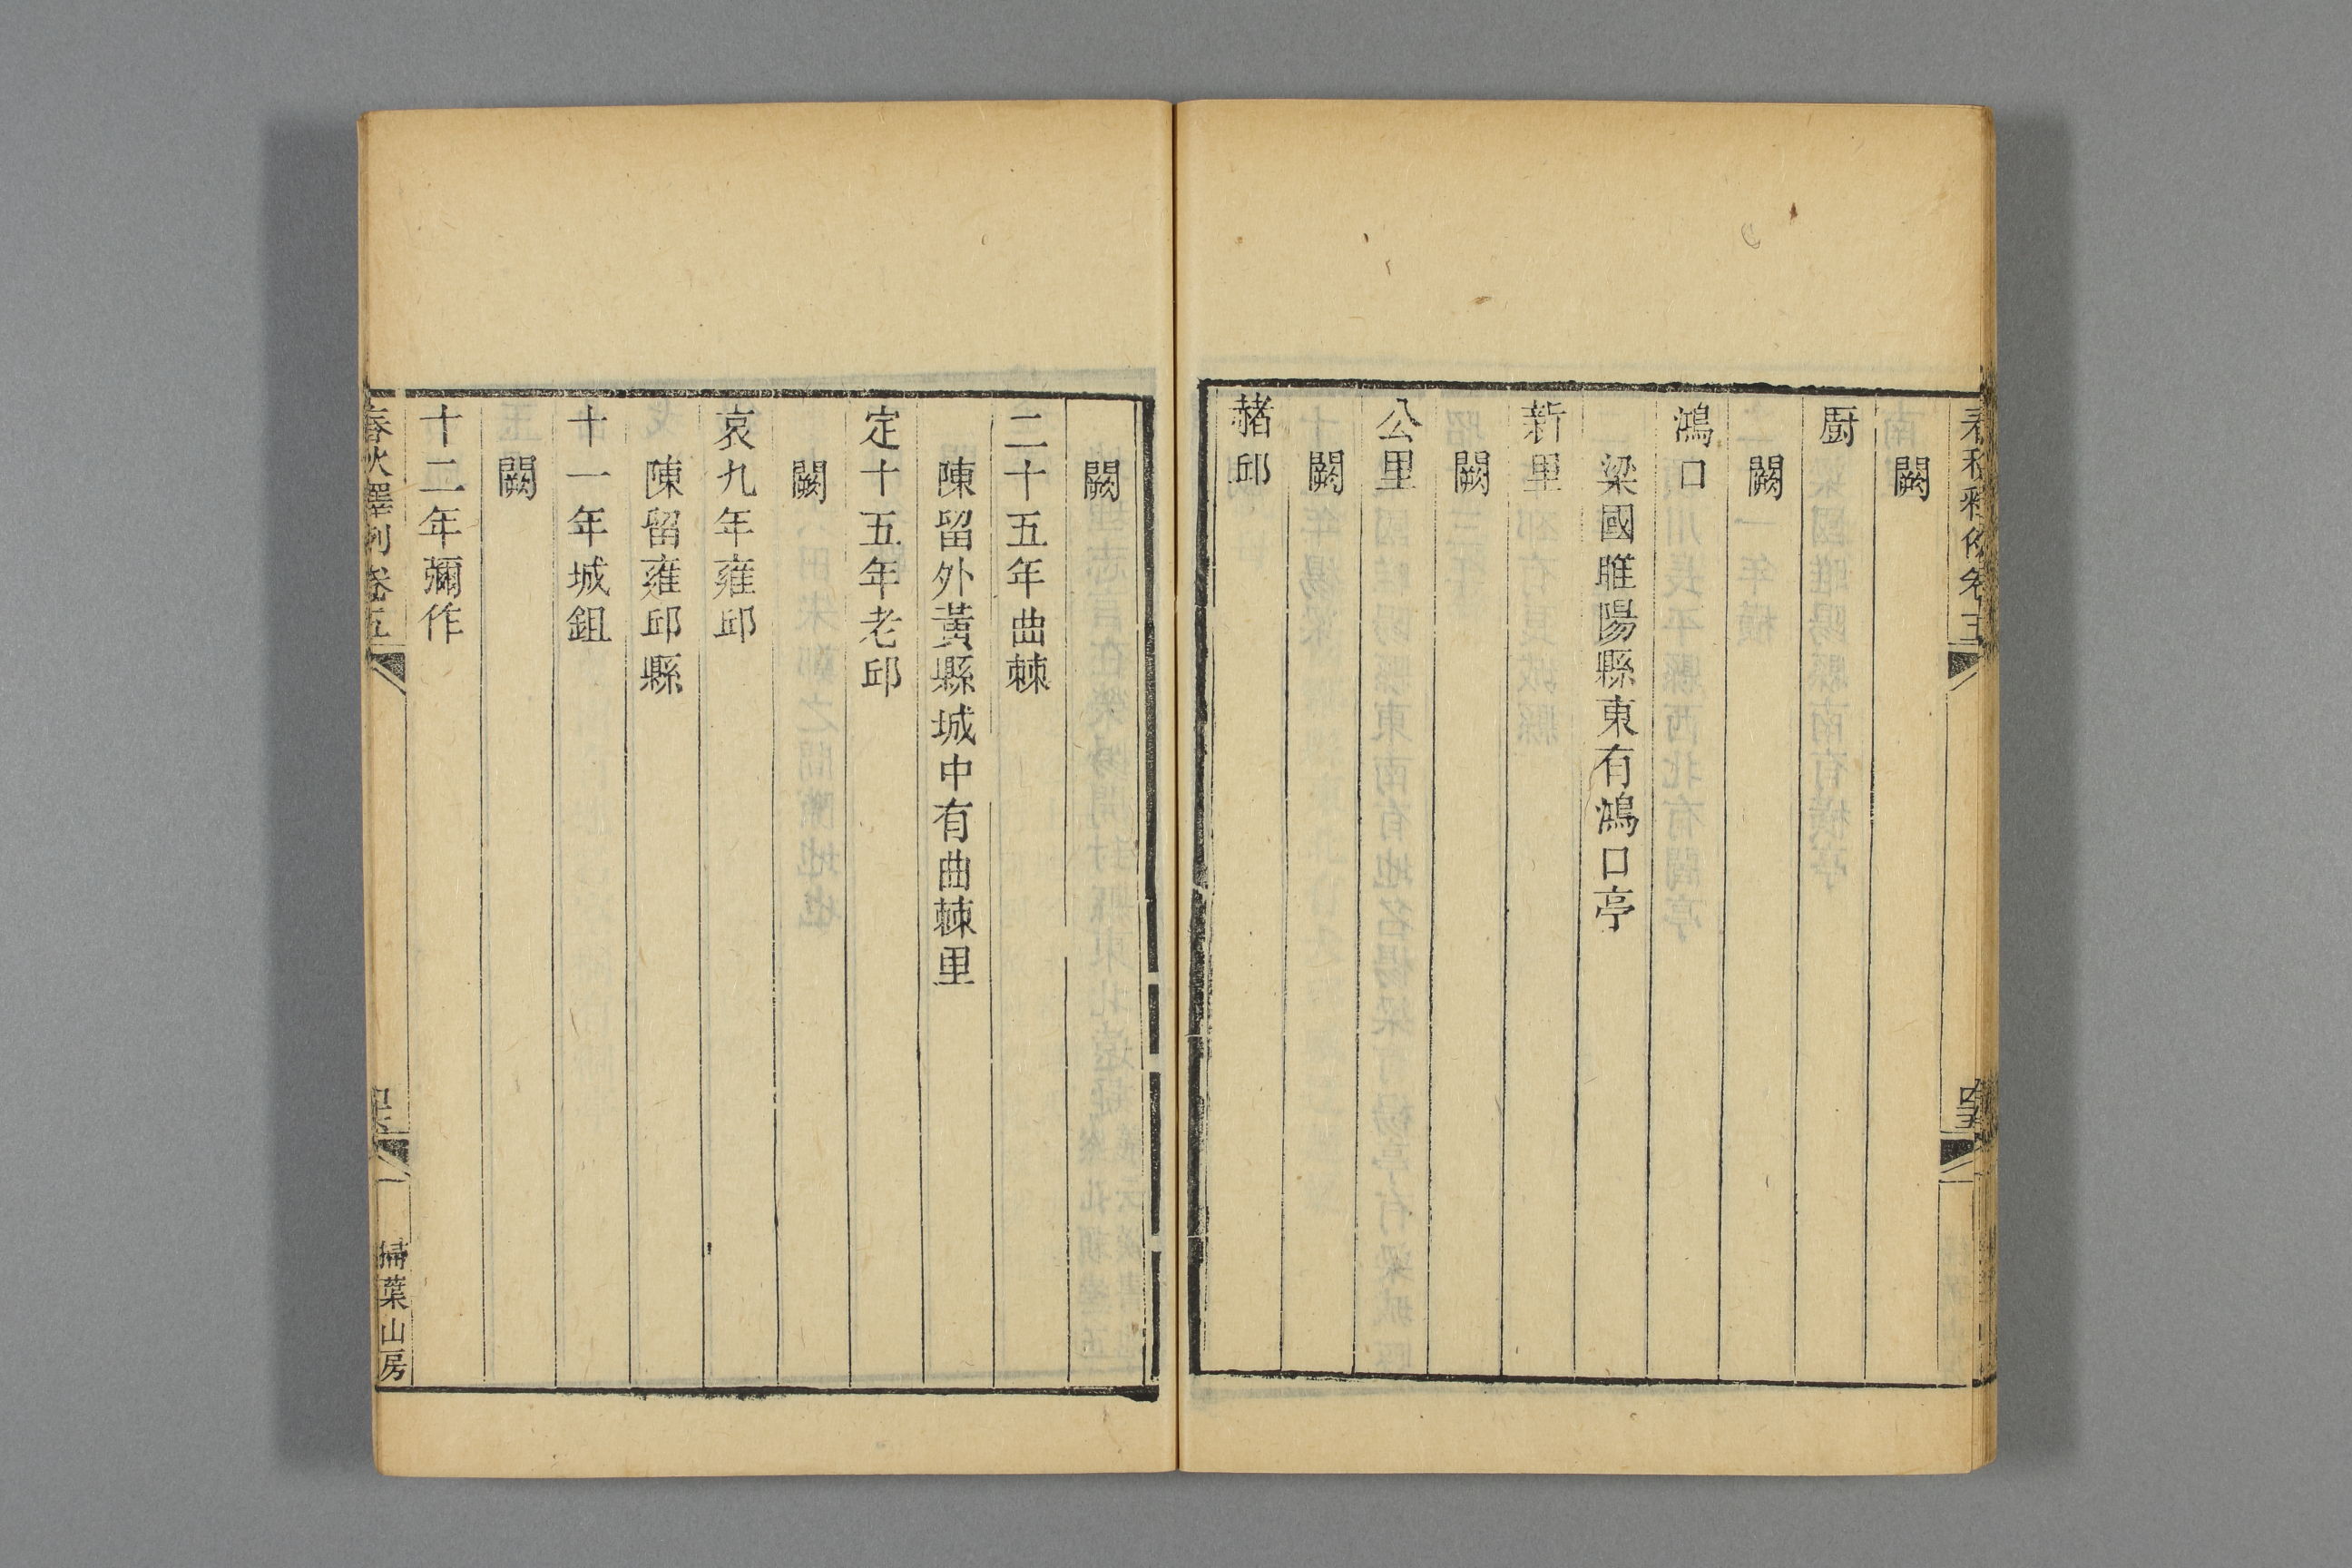 闕
厨
闕
鴻口
梁國睢陽縣東有鴻口亭
新里
闕
公里
闕
赭邱
闕
二十五年曲棘
陳留外黃縣城中有曲棘里
定十五年老邱
闕
哀九年雍邱
陳留雍邱縣
十一年城鉏
闕
十二年彌作
春秋釋例卷五
掃葉山房